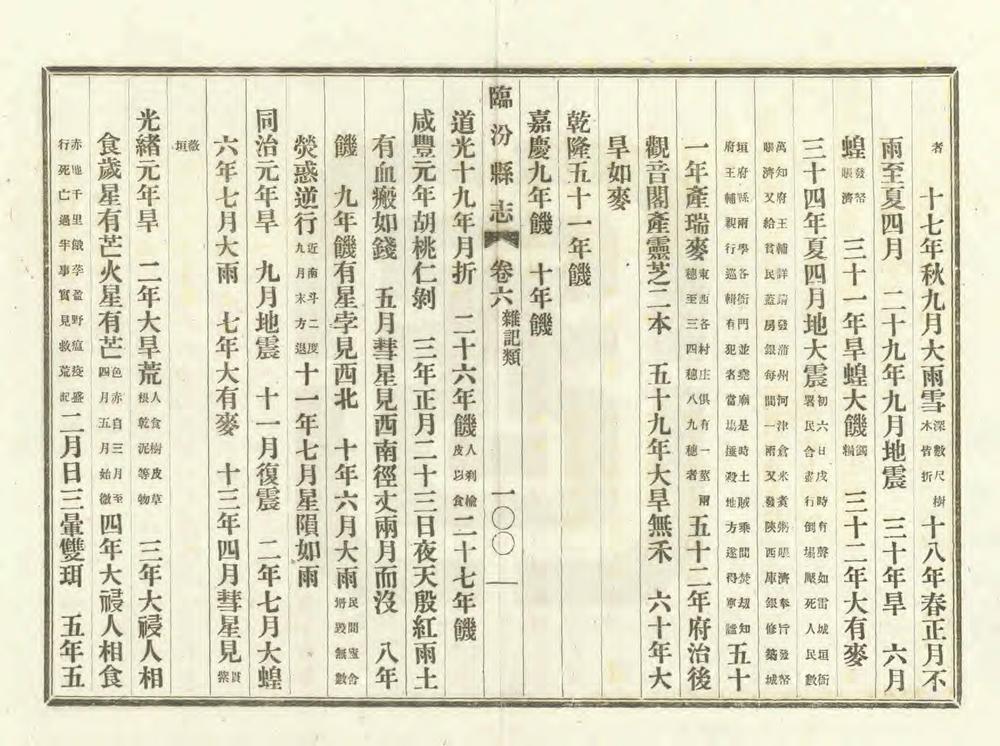 者　十七年秋九月大雨雪深數尺樹木皆折十八年春正月不
雨至夏四月　二十九年九月地震　三十年旱　六月
蝗發帑賑濟　三十一年旱蝗大饑蠲糧　三十二年大有麥
三十四年夏四月地大震初六日戌時有聲如雷城垣衙署民舍盡行倒塌壓死人民數
萬知府王輔詳請發蒲州河津倉米煮粥賑濟奉旨發帑賑濟又給貧民蓋房銀每間一兩又發陝西庫銀修築城
垣府縣兩學各衙門並堯廟是時土賊乘間焚刧知府王輔親行巡輯有犯者當塲擒殺地方遂得寧謐五十
一年產瑞麥東西各村庄俱有一莖兩穗至三四穗八九穗者五十二年府治後
觀音閣產靈芝二本　五十九年大旱無禾　六十年大
旱如麥
乾隆五十一年饑
嘉慶九年饑　十年饑
臨汾縣志　卷六　雜記類　一〇〇
道光十九年月折　二十六年饑人剥楡皮以食二十七年饑
咸豐元年胡桃仁剝　三年正月二十三日夜天殷紅雨土
有血瘢如錢　五月彗星見西南徑丈兩月而沒　八年
饑　九年饑有星孛見西北　十年六月大雨民間廬舍坍毀無數
熒惑逆行近南斗二度九月末方退十一年七月星隕如雨
同治元年旱　九月地震　十一月復震　二年七月大蝗
六年七月大雨　七年大有麥　十三年四月彗星見貫紫
薇垣
光緒元年旱　二年大旱荒人食樹皮草根乾泥等物　三年大祲人相
食歲星有芒火星有芒色赤自三月至四月五月始微四年大祲人相食
赤地千里餓莩盈野瘟疫盛行死亡過半事實見救荒記二月日三暈雙珥　五年五